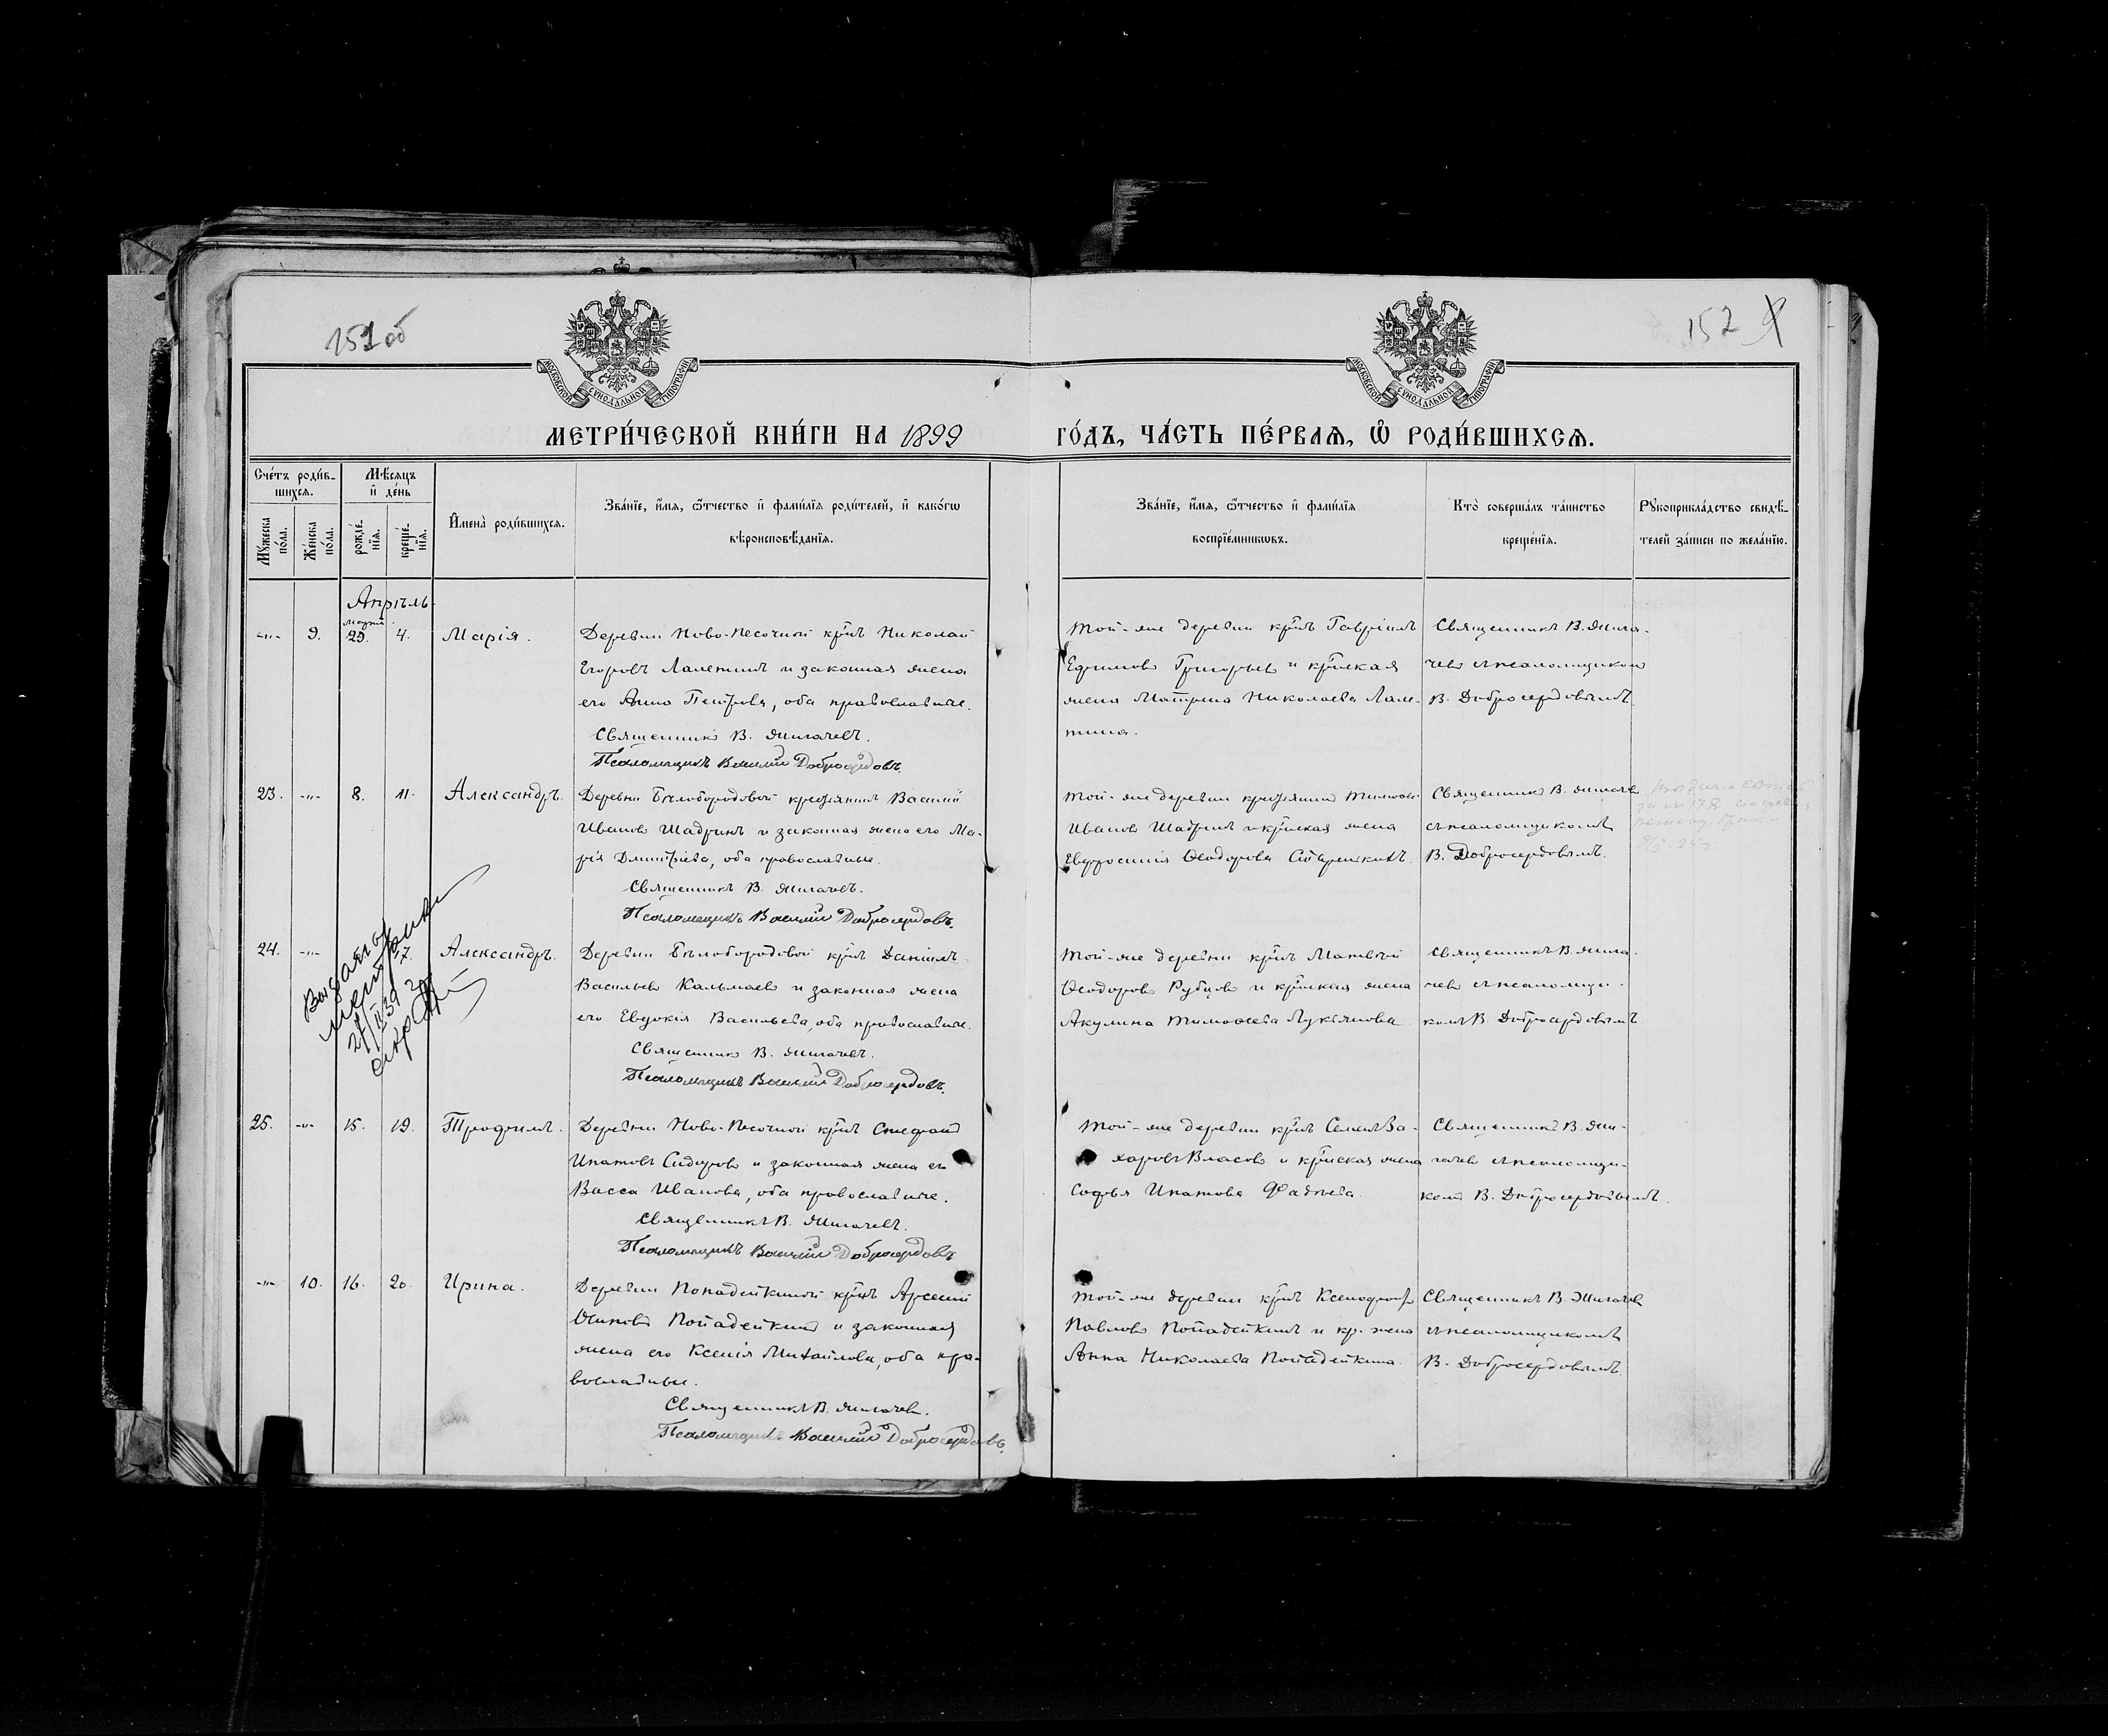 151 об
152
МОСКОВСКОЙ СѴНОДАЛЬНОЙ ТИПОГРАФІИ
МОСКОВСКОЙ СѴНОДАЛЬНОЙ ТИПОГРАФІИ
МЕТРИ́ЧЕСКОЙ КНИ́ГИ НА 1899
ГО́ДЪ, ЧА́СТЬ ПЕ́РВАЯ, Ѽ РОДИ́ВШИХСЯ.
Сче́тъ роди́в-
шихся.
Мѣ́сяцъ
и҆ де́нь
Мꙋ́жеска по́ла.
Же́нска по́ла.
рожде́-нїя.
креще́-нїя.
И҆мена̀ роди́вшихся.
Зва́нїе, и҆́мя, ѻ҆́тчество и҆ фами́лїя роди́телей, и҆ како́гѡ
вѣроисповѣ́данїя.
Зва́нїе, и҆́мя, ѻ҆́тчество и҆ фами́лїя
воспрїе́мникѡвъ.
Кто̀ соверша́лъ та́инство
креще́нїя.
Рꙋкоприкла́дство свидѣ́-
телей за́писи по жела́нїю.
Апрѣль
Марта
-"- 9. 29. 4. Марія.
Деревни Ново-Песочной крнъ Николай
Егоровъ Лалетинъ и законная жена
его Анна Петрова, оба православные.
Священникъ В.
Псаломщикъ Василій Добросердовъ.
Той-же деревни крнъ Гавріилъ
Ефимовъ Григорьевъ и крнская
жена Матрена Николаева Лале-
тина.
Священникъ В.
съ псаломщикомъ
В. Добросердовымъ.
23. -"- 8. 11. Александръ.
Деревни Бѣлобородовой крестьянинъ Василій
Ивановъ Шадринъ и законная жена его Ма-
рія Дмитріева, оба православные.
Священникъ В.
Псаломщикъ Василій Добросердовъ.
Той-же деревни крестьянинъ
Ивановъ Шадринъ и крнская жена
Евфросинія Ѳеодорова
Священникъ В.
съ псаломщикомъ
В. Добросердовымъ.
24. -"- 17. Александръ.
Выдана
метрика
Деревни Бѣлобородовой крнъ Даніилъ
Васильевъ Кальмаевъ и законная жена
его Евдокія Васильева, оба православные.
Священникъ В.
Псаломщикъ Василій Добросердовъ.
Той-же деревни крнъ Матвѣй
Ѳеодоровъ Рубцовъ и крнская жена
Акулина Тимофеева Лукьянова.
Священникъ В.
съ псаломщи-
комъ В. Добросердовымъ
25. -"- 15. 19. Трофимъ.
Деревни Ново-Песочной крнъ Стефанъ
Ипатовъ Сидоровъ и законная жена его
Васса Иванова, оба православные.
Священникъ В.
Псаломщикъ Василій Добросердовъ
Той-же деревни крнъ Семенъ За-
харовъ Власовъ и крнская жена
Софья Ипатова Фадѣева.
Священникъ В.
съ псаломщи-
комъ В. Добросердовымъ.
-"- 10. 16. 20. Ирина.
Деревни Попадейкиной крнъ Арсеній
Осиповъ Попадейкинъ и законная
жена его Ксенія Михайлова, оба пра-
вославные.
Священникъ В.
Псаломщикъ Василій Добросердовъ.
Той-же деревни крнъ Ксенофонтъ
Павловъ Попадейкинъ и кр. жена
Анна Николаева Попадейкина.
Священникъ В.
съ псаломщикомъ
В. Добросердовымъ.